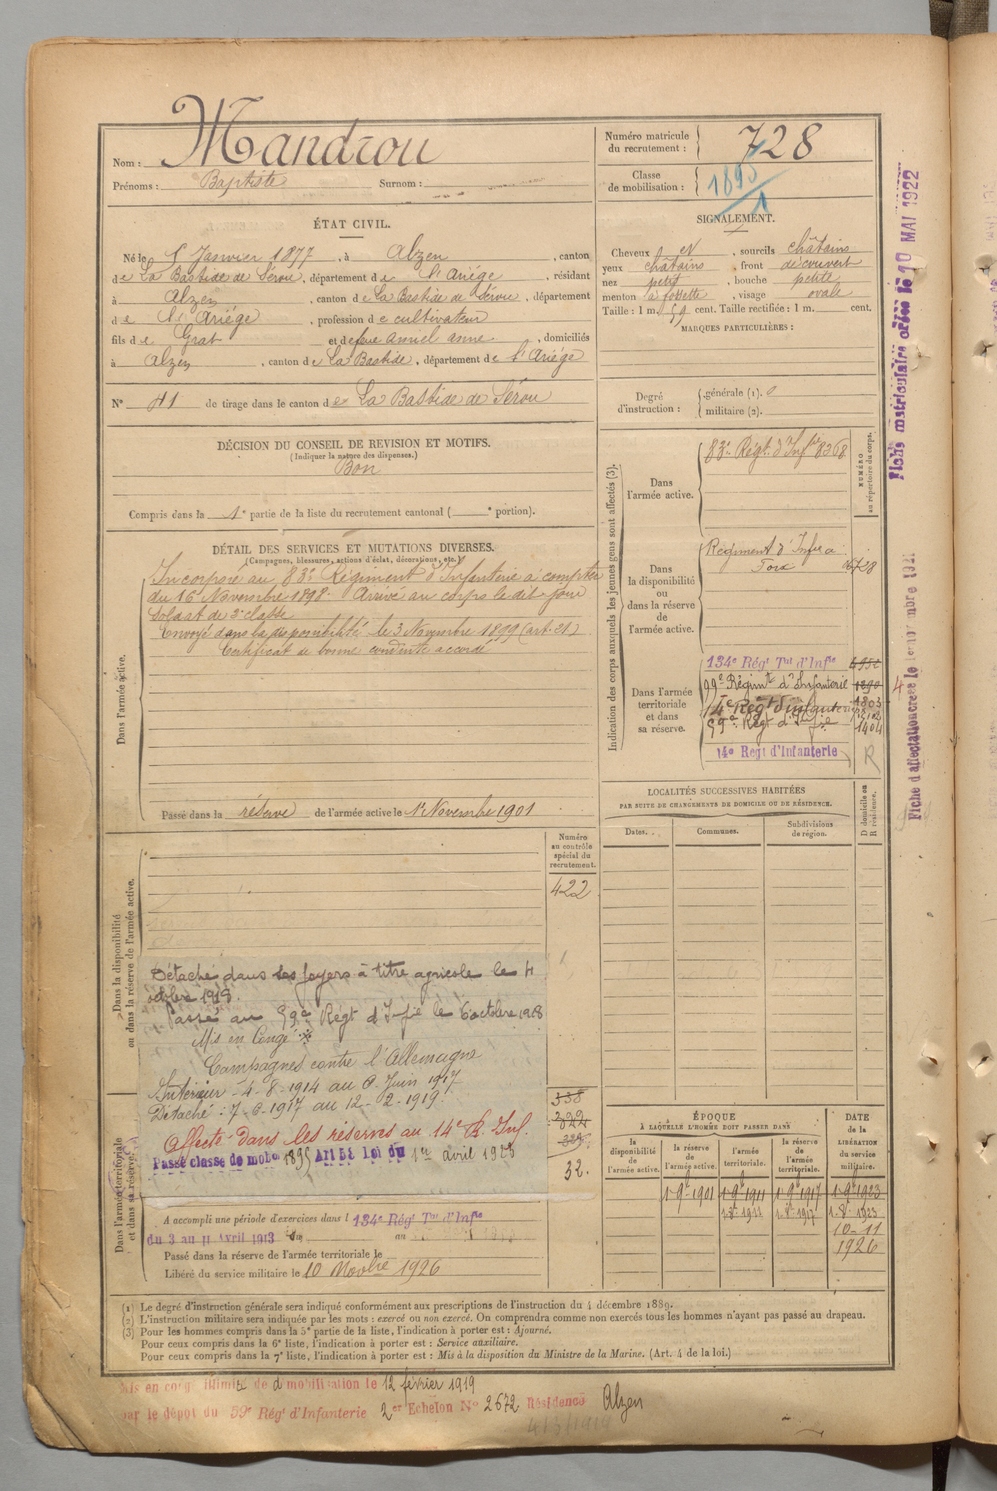 Nom : Mandrou
Prénoms : Baptiste Surnom :
Numéro matricule du recrutement : 728
Classe de mobilisation : 1895
ÉTAT CIVIL.
Né le 1er Janvier 1877, à Alzen, canton
de La Bastide de Sérou, département de l'Ariège, résidant
à Alzen, canton de La Bastide de Sérou, département
de l'Ariège, profession de cultivateur
fils de Grat et de feue Anniel anne, domiciliés
à Alzen, canton de La Bastide, département de l'Ariège
N° 41 de tirage dans le canton de La Bastide de Sérou
DÉCISION DU CONSEIL DE REVISION ET MOTIFS.
(Indiquer la nature des dispenses.)
Bon
Compris dans la 1e partie de la liste du recrutement cantonal ( e portion).
DÉTAIL DES SERVICES ET MUTATIONS DIVERSES.
(Campagnes, blessures, actions d'éclat, décorations, etc.)
Dans l'armée active.
Incorporé au 83e Régiment d'Infanterie à compter
du 16 Novembre 1898. Arrivé au corps le dit jour
Soldat de 2e classe
Envoyé dans la disponibilité le 3 Novembre 1899 (art. 21)
Certificat de bonne conduite accordé
Passé dans la réserve de l'armée active le 1er Novembre 1901
Dans la disponibilité ou dans la réserve de l'armée active.
Numéro au contrôle spécial du recrutement.
422
Détaché dans ses foyers à titre agricole le 4
octobre 1918.
Passé au 59e Régt d'Infie le 6 octobre 1918
Mis en Congé
Campagnes contre l'Allemagne
Intérieur - 4-8-1914 au 6 Juin 1917
Détaché : 7-6-1917 au 12-2-1919
Affecté dans les réserves au 14e R. Inf.
Passé classe de mobon 1895 Art 58 Loi du 1er avril 1923
338
322
32.
Dans l'armée territoriale et dans sa réserve.
A accompli une période d'exercices dans l 134e Régt Tal d'Infie
du 3 au 11 Avril 1913 au
Passé dans la réserve de l'armée territoriale le
Libéré du service militaire le 10 Novbre 1926
SIGNALEMENT.
Cheveux et, sourcils châtains
yeux châtains, front découvert
nez petit, bouche petite
menton à fossette, visage ovale
Taille : 1 m. 59 cent. Taille rectifiée : 1 m. cent.
MARQUES PARTICULIÈRES :
Degré d'instruction : générale (1). 0
militaire (2).
Indication des corps auxquels les jeunes gens sont affectés (3).
NUMÉRO au répertoire du corps.
Dans l'armée active.
83e Régt. d'Infie 8268
Dans la disponibilité ou dans la réserve de l'armée active.
Régiment d'Infie à
Foix
Dans l'armée territoriale et dans sa réserve.
134e Régt Tal d'Infie
99e Régimt d'Infanterie
14e Régt d'infanterie 1803
59e Régt d'Infie 1404
14e Regt d'Infanterie R
LOCALITÉS SUCCESSIVES HABITÉES
PAR SUITE DE CHANGEMENTS DE DOMICILE OU DE RÉSIDENCE.
Dates. Communes. Subdivisions de région. D domicile ou R résidence.
ÉPOQUE
À LAQUELLE L'HOMME DOIT PASSER DANS
DATE de la LIBÉRATION du service militaire.
la disponibilité de l'armée active. la réserve de l'armée active. l'armée territoriale. la réserve de l'armée territoriale.
1-9-1901 1-9-1911 1-9-1917 1-9-1923
1-8-1911 1-8-1917 1-8-1923
10-11
1926
(1) Le degré d'instruction générale sera indiqué conformément aux prescriptions de l'instruction du 4 décembre 1889.
(2) L'instruction militaire sera indiquée par les mots : exercé ou non exercé. On comprendra comme non exercés tous les hommes n'ayant pas passé au drapeau.
(3) Pour les hommes compris dans la 5e partie de la liste, l'indication à porter est : Ajourné.
Pour ceux compris dans la 6e liste, l'indication à porter est : Service auxiliaire.
Pour ceux compris dans la 7e liste, l'indication à porter est : Mis à la disposition du Ministre de la Marine. (Art. 4 de la loi.)
Mis en congé illimité de démobilisation le 12 février 1919
par le dépot du 59e Régt d'Infanterie 2er Echelon N° 2672 Résidence Alzen
Fiche matriculaire créée le 10 MAI 1922
Fiche d'affectation créée le 1er novembre 1921